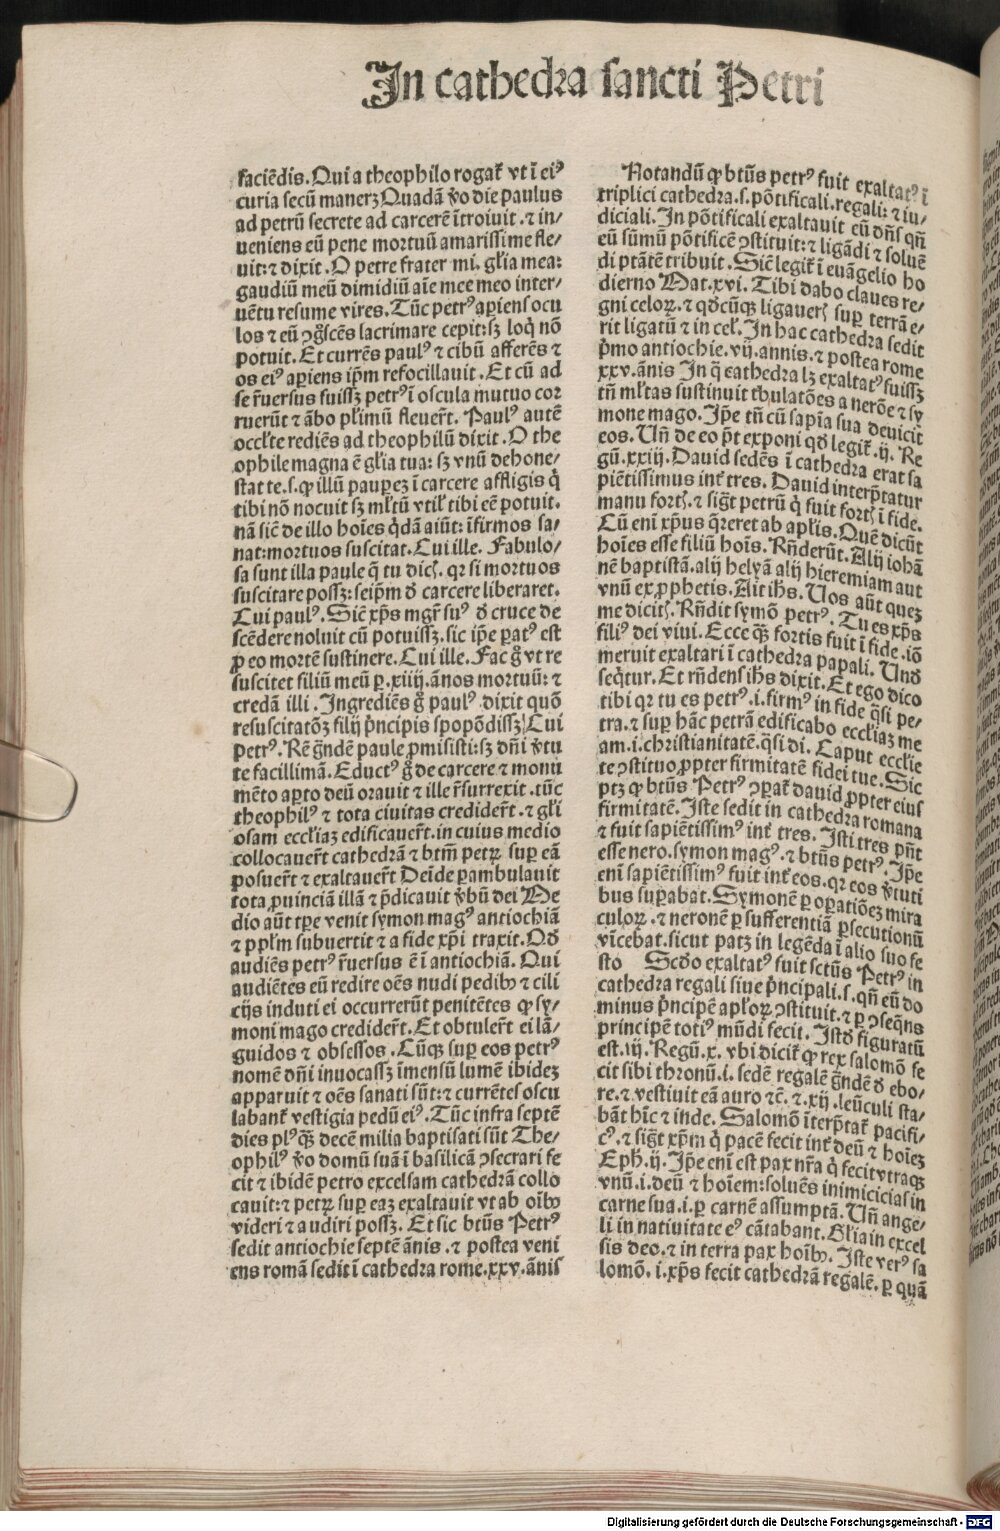 In cathedra sancti Petri
faciēdis. Qui a theophilo rogat̄ vt ī eiꝰ
curia secū manerꝫ Quadā v̄o die paulus
ad petrū secrete ad carcerē ītroiuit. ⁊ in/
ueniens eū pene mortuū amarissime fle/
uit: ⁊ dixit. O petre frater mi. gl̄ia mea:
gaudiū meū dimidiū aīe mee meo inter/
uētu resume vires. Tūc petrꝰ aꝑiens ocu
los ⁊ eū ꝯg̊scēs lacrimare cepit: sꝫ loq̄ nō
potuit. Et currēs paulꝰ ⁊ cibū afferēs ⁊
os eiꝰ aꝑiens ip̄m refocillauit. Et cū ad
se r̄uersus fuissꝫ petrꝰ ī oscula mutuo cor
ruerūt ⁊ ābo pl̄imū fleuer̄t. Paulꝰ autē
occl̄te rediēs ad theophilū dixit. O the
ophile magna ē gl̄ia tua: sꝫ vnū dehone/
stat te. s. ꝙ illū pauꝑeꝫ ī carcere affligis q̄
tibi nō nocuit sꝫ ml̄tū vtil̄ tibi eē potuit.
nā sic̄ de illo hoīes q̄dā aiūt: īfirmos sa/
nat: mortuos suscitat. Cui ille. Fabulo/
sa sunt illa paule q̄ tu dic̄. qꝛ si mortuos
suscitare possꝫ: seip̄m d̄ carcere liberaret.
Cui paulꝰ. Sic̄ xp̄s mgr̄ suꝰ d̄ cruce de
scēdere noluit cū potuissꝫ. sic ip̄e ꝑatꝰ est
ꝓ eo mortē sustinere. Cui ille. Fac g̊ vt re
suscitet filiū meū ꝑ .xiiij. ānos mortuū: ⁊
credā illi. Ingrediēs g̊ paulꝰ dixit quō
resuscitatōꝫ filij p̄ncipis spopōdissꝫ. Cui
petrꝰ. Rē g̊ndē paule ꝓmisisti: sꝫ dn̄i v̄tu
te facillimā. Eductꝰ g̊ de carcere ⁊ monu
mēto aꝑto deū orauit ⁊ ille r̄surrexit. tūc
theophilꝰ ⁊ tota ciuitas credider̄t. ⁊ gl̄i
osam eccl̄iaꝫ edificauer̄t. in cuius medio
collocauer̄t cathedrā ⁊ btm̄ petrꝝ suꝑ eā
posuer̄t ⁊ exaltauer̄t Deīde ꝑambulauit
tota ꝓuinciā illā ⁊ p̄dicauit v̄bū dei Me
dio aūt tꝑe venit symon magꝰ antiochiā
⁊ ppl̄m subuertit ⁊ a fide xp̄i traxit. Qd̄
audiēs petrꝰ r̄uersus ē ī antiochiā. Qui
audiētes eū redire oēs nudi pedibꝰ ⁊ cili
cijs induti ei occurrerūt penitētes ꝙ sy/
moni mago credider̄t. Et obtuler̄t ei lā/
guidos ⁊ obsessos. Cūqꝫ suꝑ eos petrꝰ
nomē dn̄i inuocassꝫ īmensū lumē ibideꝫ
apparuit ⁊ oēs sanati sūt: ⁊ currētes oscu
labant̄ vestigia pedū eiꝰ. Tūc infra septē
dies plꝰ qꝫ̄ decē milia baptisati sūt The/
ophilꝰ v̄o domū suā ī basilicā ꝯsecrari fe
cit ⁊ ibidē petro excelsam cathedrā collo
cauit: ⁊ petrꝝ suꝑ eaꝫ exaltauit vt ab oībꝰ
videri ⁊ audiri possꝫ. Et sic btūs Petrꝰ
sedit antiochie septē ānis. ⁊ postea veni
ens romā sedit ī cathedra rome .xxv. ānis
Notandū ꝙ btūs petrꝰ fuit exaltatꝰ ī
triplici cathedra. s. pōtificali. regali: ⁊ iu/
diciali. In pōtificali exaltauit eū dn̄s qn̄
eū sūmū pōtificē ꝯstituit: ⁊ ligādi ⁊ soluē
di ptātē tribuit. Sic̄ legit̄ ī euāgelio ho
dierno Mat. xvi. Tibi dabo claues re/
gni celoꝝ. ⁊ qd̄cūqꝫ ligauer̄ suꝑ terrā e/
rit ligatū ⁊ in cel̄. In hac cathedra sedit
p̄mo antiochie .vij. annis. ⁊ postea rome
xxv. ānis In q̄ cathedra lꝫ exaltatꝰ fuissꝫ
tn̄ ml̄tas sustinuit tbulatōes a nerōe ⁊ sy
mone mago. Ip̄e tn̄ cū sapīa sua deuicit
eos. Un̄ de eo p̄t exponi qd̄ legit̄ .ij. Re
gū. xxiij. Dauid sedēs ī cathedra erat sa
piētissimus int̄ tres. Dauid interp̄tatur
manu fort̄. ⁊ sigt̄ petrū q̄ fuit fort̄ ī fide.
Cū eni xp̄us q̄reret ab apl̄is. Quē dicūt
hoīes esse filiū hoīs. Rn̄derūt. Alij iohā
nē baptistā. alij helyā alij hieremiam aut
vnū ex ꝓphetis. Ait ih̄s. Uos aūt quez
me dicit̄. Rn̄dit symō petrꝰ. Tu es xp̄s
filiꝰ dei viui. Ecce qꝫ̄ fortis fuit ī fide. iō
meruit exaltari ī cathedra papali. Und̄
seq̄tur. Et rn̄dens ih̄s dixit. Et ego dico
tibi qꝛ tu es petrꝰ. i. firmꝰ in fide q̄si pe/
tra. ⁊ suꝑ hāc petrā edificabo eccl̄iaꝫ me
am. i. christianitatē. q̄si di. Caput eccl̄ie
te ꝯstituo ꝓpter firmitatē fidei tue. Sic
ptꝫ ꝙ btūs Petrꝰ ꝯꝑat̄ dauid ꝓpter eius
firmitatē. Iste sedit in cathedra romana
⁊ fuit sapiētissimꝰ int̄ tres. Isti tres pn̄t
esse nero. symon magꝰ. ⁊ btūs petrꝰ. Ip̄e
eni sapiētissimꝰ fuit int̄ eos. qꝛ eos v̄tuti
bus suꝑabat. Symonē ꝑ oꝑatiōeꝫ mira
culoꝝ. ⁊ neronē ꝑ sufferentiā ꝑsecutionū
vīcebat. sicut patꝫ in legēda ī alio suo fe
sto Scd̄o exaltatꝰ fuit sctūs Petrꝰ in
cathedra regali siue p̄ncipali. s. qn̄ eū do
minus p̄ncipē apl̄oꝝ ꝯstituit. ⁊ ꝑ ꝯseq̄ns
principē totiꝰ mūdi fecit. Istd̄ figuratū
est. iij. Regū. x. vbi dicit̄ ꝙ rex salomō fe
cit sibi thronū. i. sedē regalē g̊ndē d̄ ebo/
re. ⁊ vestiuit eā auro ⁊c̄. ⁊ .xij. leūculi sta/
bāt hīc ⁊ inde. Salomō īterp̄tat̄ pacifi/
cꝰ. ⁊ sigt̄ xp̄m q̄ pacē fecit int̄ deū ⁊ hoīeꝫ
Eph̄. ij. Ip̄e eni est pax nr̄a q̄ fecit vtraqꝫ
vnū. i. deū ⁊ hoīem: soluēs inimicicias in
carne sua. i. ꝑ carnē assumptā. Un̄ ange/
li in natiuitate eꝰ cātabant. Gl̄ia in excel
sis deo. ⁊ in terra pax hoībꝰ. Iste verꝰ sa
lomō. i. xp̄s fecit cathedrā regalē. ꝑ quā
Digitalisierung gefördert durch die Deutsche Forschungsgemeinschaft - DFG